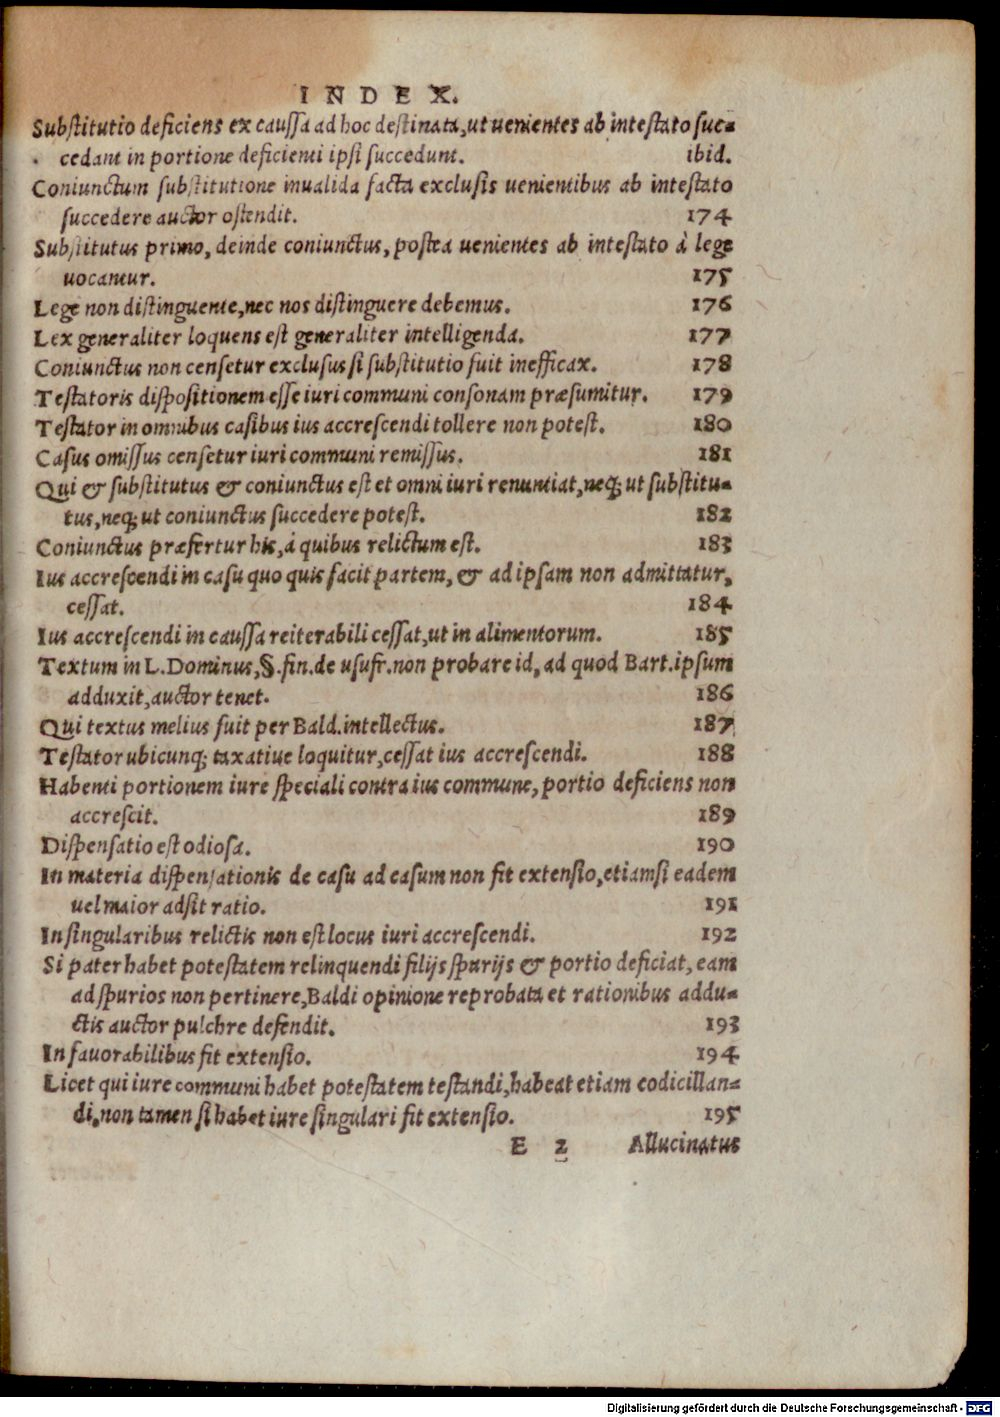 INDEX.
Substitutio deficiens ex caussa ad hoc destinata, ut uenientes ab intestato suc-
cedant in portione deficienti ipsi succedunt. ibid.
Coniunctum substitutione inualida facta exclusis uenientibus ab intestato
succedere auctor ostendit. 174
Substitutus primo, deinde coniunctus, postea uenientes ab intestato à lege
uocantur. 175
Lege non distinguente, nec nos distinguere debemus. 176
Lex generaliter loquens est generaliter intelligenda. 177
Coniunctus non censetur exclusus si substitutio fuit inefficax. 178
Testatoris dispositionem esse iuri communi consonam præsumitur. 179
Testator in omnibus casibus ius accrescendi tollere non potest. 180
Casus omissus censetur iuri communi remissus. 181
Qui & substitutus & coniunctus est et omni iuri renuntiat, neq; ut substitu-
tus, neq; ut coniunctus succedere potest. 182
Coniunctus præfertur his, à quibus relictum est. 183
Ius accrescendi in casu quo quis facit partem, & ad ipsam non admittatur,
cessat. 184
Ius accrescendi in caussa reiterabili cessat, ut in alimentorum. 185
Textum in L. Dominus, §. fin. de usufr. non probare id, ad quod Bart. ipsum
adduxit, auctor tenet. 186
Qui textus melius fuit per Bald. intellectus. 187
Testator ubicunq; taxatiue loquitur, cessat ius accrescendi. 188
Habenti portionem iure speciali contra ius commune, portio deficiens non
accrescit. 189
Dispensatio est odiosa. 190
In materia dispensationis de casu ad casum non fit extensio, etiamsi eadem
uel maior adsit ratio. 191
In singularibus relictis non est locus iuri accrescendi. 192
Si pater habet potestatem relinquendi filijs spurijs & portio deficiat, eam
ad spurios non pertinere, Baldi opinione reprobata et rationibus addu-
ctis auctor pulchre defendit. 193
In fauorabilibus fit extensio. 194
Licet qui iure communi habet potestatem testandi, habeat etiam codicillan-
di, non tamen si habet iure singulari fit extensio. 195
E 2 Allucinatus
Digitalisierung gefördert durch die Deutsche Forschungsgemeinschaft - DFG